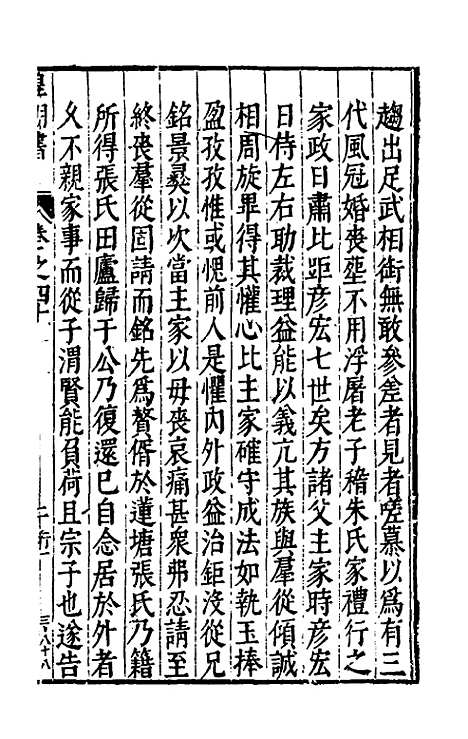 趨出足武相銜無敢參差者見者嗟慕以爲有三
代風冠婚喪塟不用浮屠老子稽朱氏家禮行之
家政日肅比歫彥宏七世矣方諸父主家時彥宏
日侍左右助裁理益能以義亢其族與羣從傾誠
相周旋畢得其懽心比主家確守成法如執玉捧
盈孜孜惟或愧前人是懼內外政益治鉅沒從兄
銘景彛以次當主家以毋喪哀痛甚衆弗忍請至
終喪羣從固請而銘先爲贅偦於蓮塘張氏乃籍
所得張氏田廬歸于公乃復還已自念居於外者
乆不親家事而從子渭賢能負荷且宗子也遂告
皇朙書
卷之四十